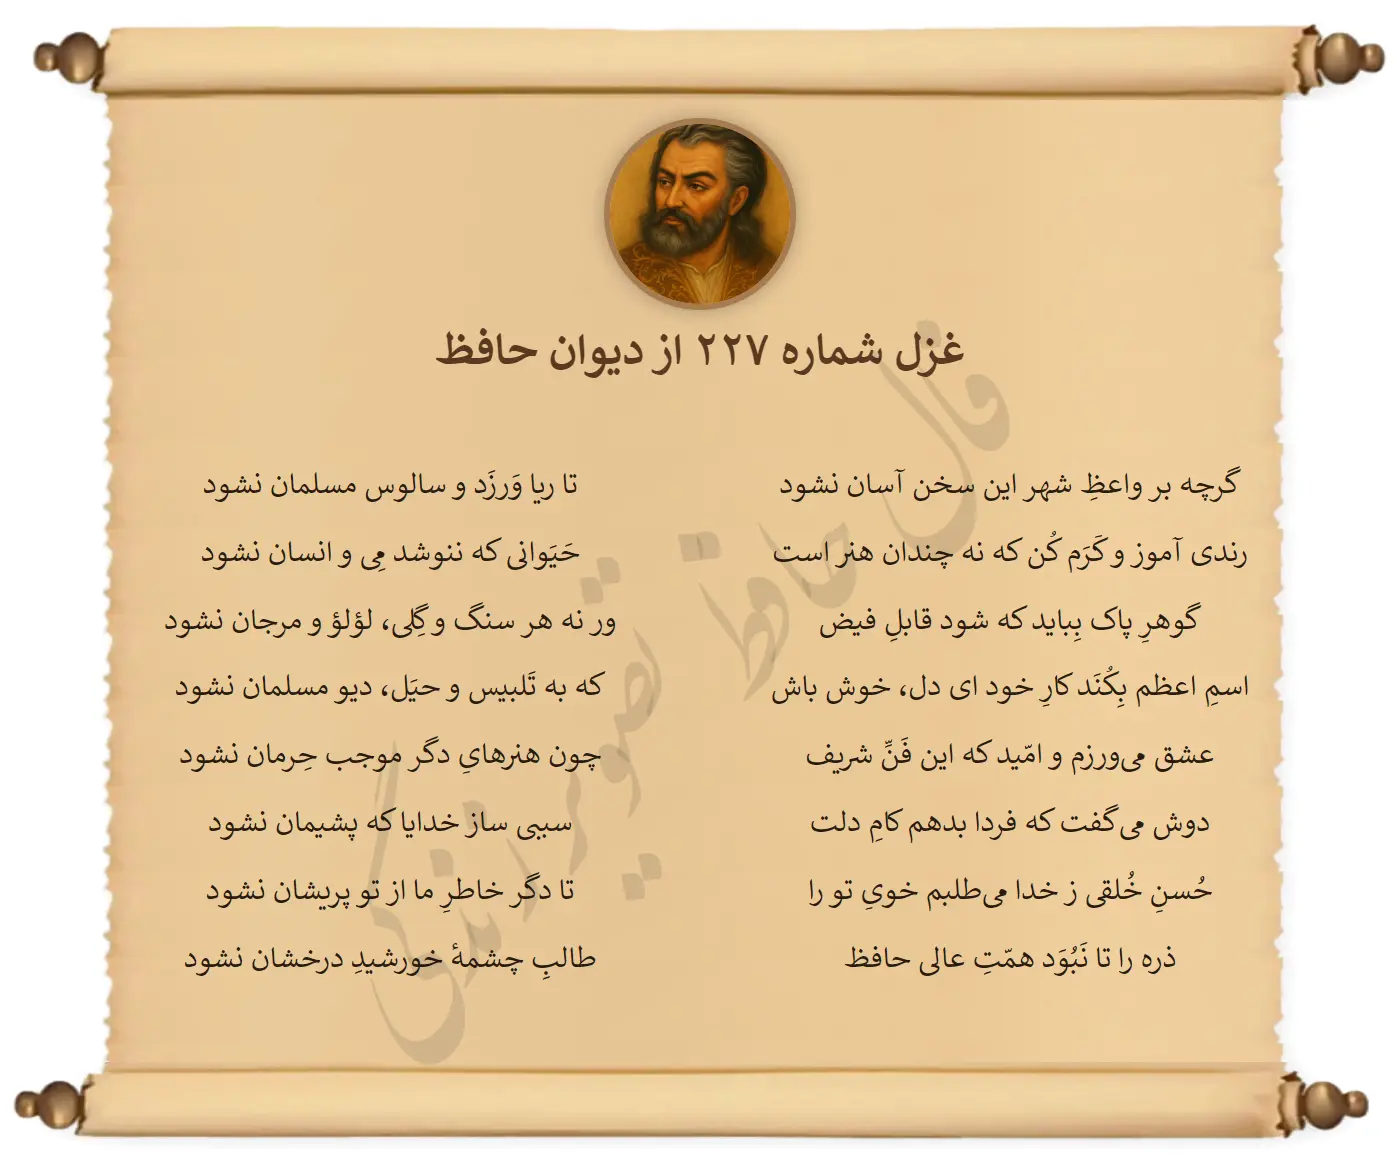 غزل شماره ۲۲۷ از دیوان حافظ
گرچه بر واعظِ شهر این سخن آسان نشود
تا ریا وَرزَد و سالوس مسلمان نشود
رندی آموز و کَرَم کُن که نه چندان هنر است
حَیَوانی که ننوشد مِی و انسان نشود
گوهرِ پاک بِباید که شود قابلِ فیض
ور نه هر سنگ و گِلی، لؤلؤ و مرجان نشود
اسمِ اعظم بِکُنَد کارِ خود ای دل، خوش باش
که به تَلبیس و حیَل، دیو مسلمان نشود
عشق می‌ورزم و امّید که این فَنِّ شریف
چون هنرهایِ دگر موجب حِرمان نشود
دوش می‌گفت که فردا بدهم کامِ دلت
سببی ساز خدایا که پشیمان نشود
حُسنِ خُلقی ز خدا می‌طلبم خویِ تو را
تا دگر خاطرِ ما از تو پریشان نشود
ذره را تا نَبُوَد همّتِ عالی حافظ
طالبِ چشمهٔ خورشیدِ درخشان نشود
فال حافظ
تصویر زندگی